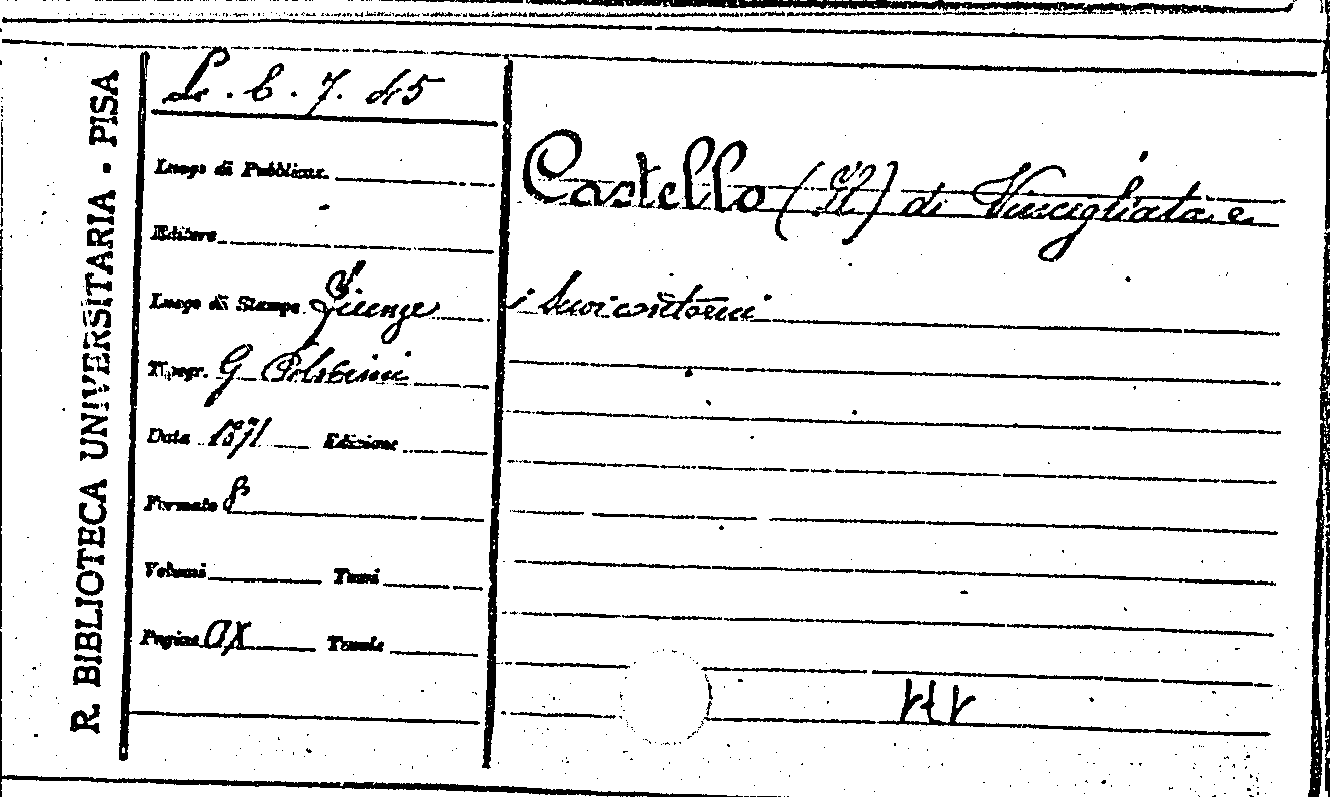 R. BIBLIOTECA UNIVERSITARIA - PISA
6. 7. 45
Luogo di Pubblicaz.
Editore
Luogo di Stampa Firenze
Tipogr. G Polverini
Data 1871 Edizione
Formato 8°
Volumi Tomi
Pagine Tavole
Castello (Il) di Vincigliata e
i suoi contorni